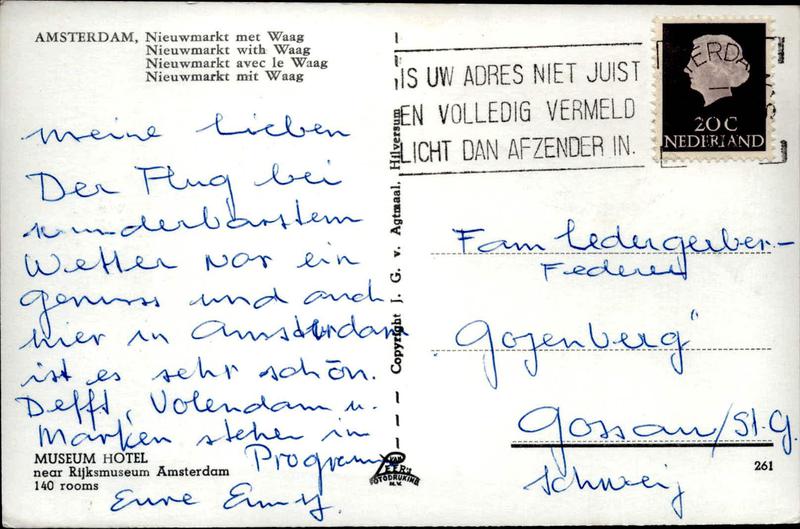 AMSTERDAM, Nieuwmarkt met Waag
Nieuwmarkt with Waag
Nieuwmarkt avec le Waag
Nieuwmarkt mit Waag
meine Lieben
Der Flug bei
wunderbarstem
Wetter war ein
Genuss und auch
hier in Amsterdam
ist es sehr schön.
Delft, Volendam u.
Marken stehen im
Programm
Eure
MUSEUM HOTEL
near Rijksmuseum Amsterdam
140 rooms
Copyright J. G. v. Agtmaal, Hilversum
VAN LEER'S
FOTODRUKIND.
N.V.
IS UW ADRES NIET JUIST
EN VOLLEDIG VERMELD
LICHT DAN AFZENDER IN.
20C
NEDERLAND
Fam Ledergerber-
Federer
"Gozenberg"
Gossau/St.G.
Schweiz
261